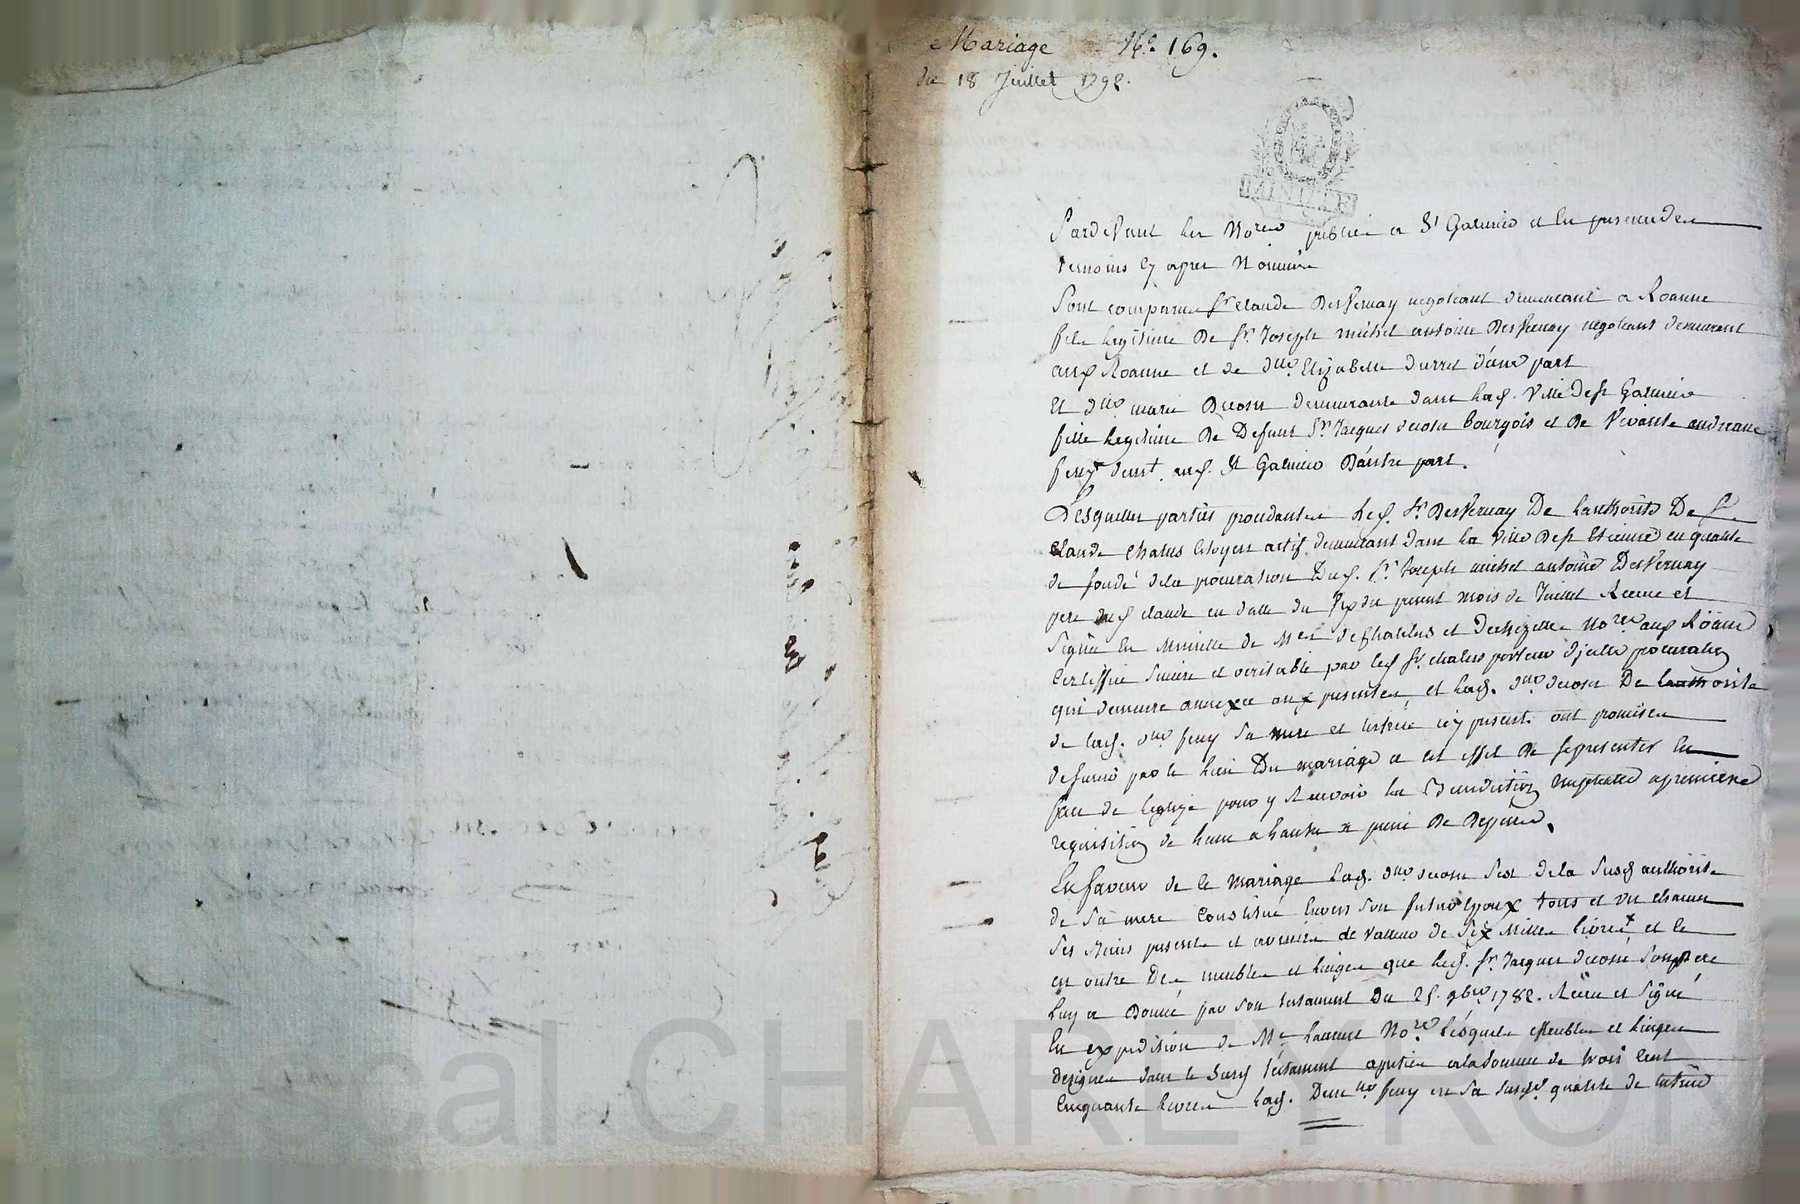 e Mariage N.o 169.
du 18 Juillet 1792.
MINUTE
Pardevant les Nores publics a St Galmier et en presence des
temoins cy apres Nommés
Sont comparus Sr claude Desvernay negotiant demeurant a Roanne
fils legitime de Sr Joseph michel antoine Desvernay negotiant demeurant
aud Roanne et de dlle Elizabeth durret d'une part
Et dlle marie Decosn demeurante dans lad. Ville de St Galmier
fille legitime de Defunt Sr Jacques decosn bourgois et de Vivante
feny demt aud. St Galmier D'autre part.
Lesquelles parties procedantes led. Sr Desvernay De l'authorité De Sr
claude chalus citoyen actif demeurant dans la ville de St Etienne en qualité
de fondé de la procuration Dud. Sr Joseph michel antoine Desvernay
pere dud claude en datte du du present mois de Juillet Recue et
Signée en Minutte de Mes et Nores aud Roanne
Certiffiée sincere et veritable par led Sr chalus porteur d'jcelle procuration
qui demeure annexée aux presentes et lad. dlle decosn De l'authorité
de lad. dlle feny sa mere et tutrice icy presente ont promis
par le lien Du mariage a cet effet de se presenter En
face de l'eglize pour y Recevoir la Benediction nuptialle a premiere
requisition de l'une a l'autre a peine de Depens.
En faveur de ce mariage lad. dlle decosn s'est de la susd authorité
de sa mere Constitué Envers son futur epoux tous et un chacun
ses Biens presents et avenirs de valleur de Six Milles livres et ce
en outre Des meubles et linges que led. Sr Jacques decosn son pere
luy a Donné par son testament du 25. 9bre 1782. Recu et Signé
En expedition de Me laurent Nore lesquels Meubles et linges
designés dans le susd testament a la somme de trois cent
Cinquante livres lad. Demlle feny en sa susd. qualité de tutrice
Pascal CHAREYRON